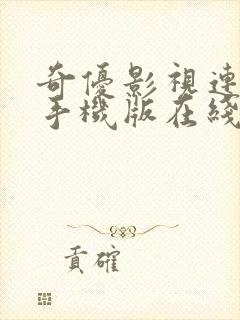 奇優影視連
手機版在綫
貢確